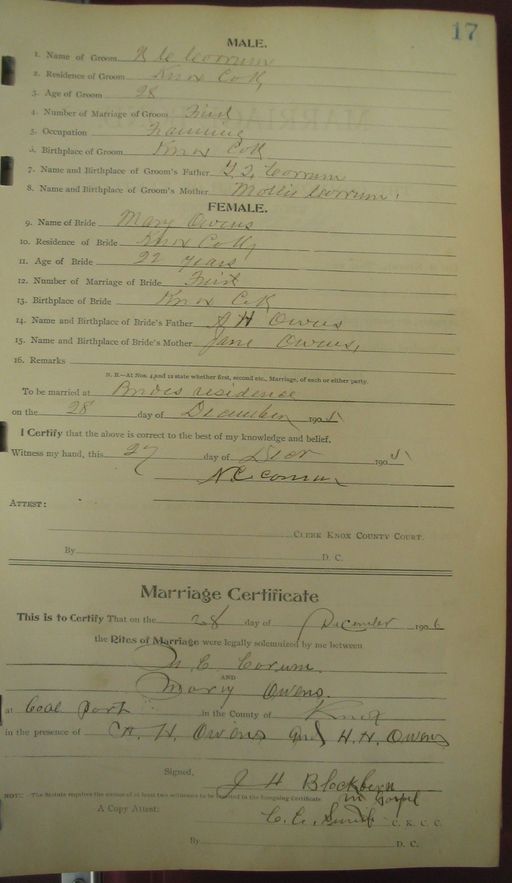 17
MALE.
1. Name of Groom N C Corrum
2. Residence of Groom Knox Co Ky
3. Age of Groom 28
4. Number of Marriage of Groom First
5. Occupation Framing
6. Birthplace of Groom Knox Co K
7. Name and Birthplace of Groom's Father Corrum
8. Name and Birthplace of Groom's Mother Mollie Corrum
FEMALE.
9. Name of Bride Mary Owens
10. Residence of Bride Knox Co Ky
11. Age of Bride 22 years
12. Number of Marriage of Bride First
13. Birthplace of Bride Knox C. K
14. Name and Birthplace of Bride's Father A H Owens
15. Name and Birthplace of Bride's Mother Jane Owens,
16. Remarks
N. B.—At Nos. 4 and 12 state whether first, second etc., Marriage, of each or either party.
To be married at Brides residence
on the 28 day of December 1905
I Certify that the above is correct to the best of my knowledge and belief.
Witness my hand, this 27 day of Decr 1905
N.C. Corrum
ATTEST:
CLERK KNOX COUNTY COURT.
By D. C.
Marriage Certificate
This is to Certify That on the 28 day of December 1906
the Rites of Marriage were legally solemnized by me between
N. C. Corum.
AND
Mary Owens.
at Coal Port in the County of Knox
in the presence of A. H. Owens and H. H. Owens
Signed, J H Blackburn
NOTE.—The Statute requires the names of at least two witnesses to be inserted in the foregoing Certificate. M Gospel
A Copy Attest: C. C. Smith C. K. C. C.
By D. C.